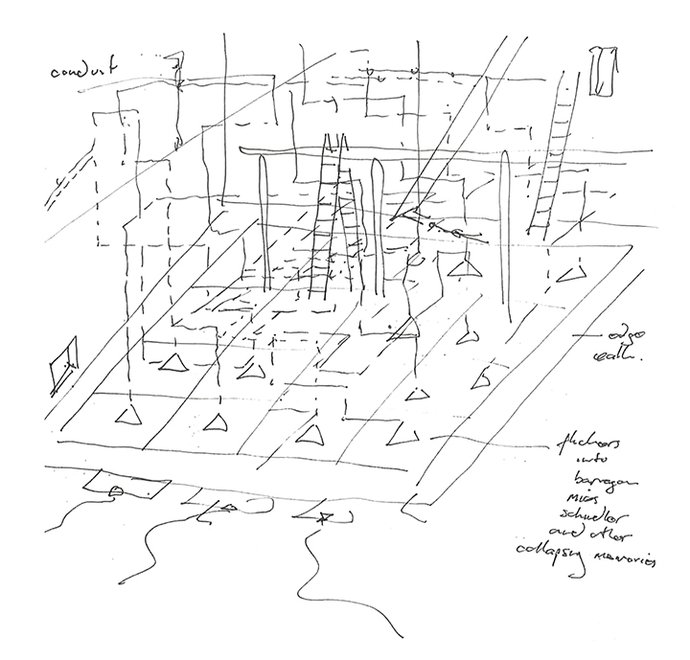 conduit
edge
walk.
flickers
into
barragan
mies
schindler
and other
collapsing memories